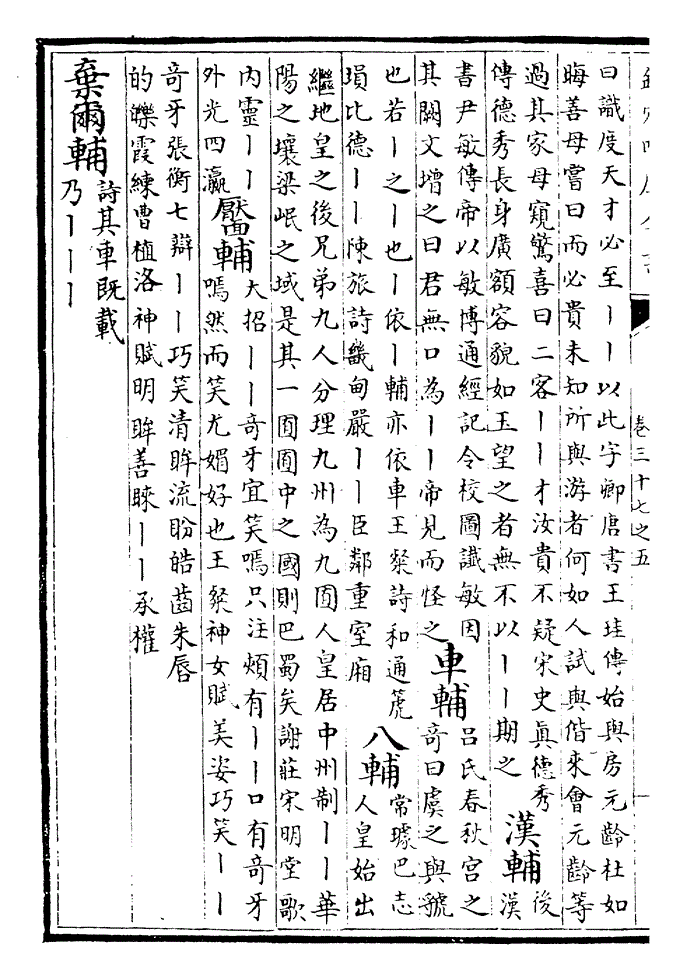 卷三十七之五
曰識度天才必至丨丨以此字卿唐書王珪傳始與房元齡杜如
晦善母嘗曰而必貴未知所與游者何如人試與偕來會元齡等
過其家母窺驚喜曰二客丨丨才汝貴不疑宋史真德秀
傳德秀長身廣額容貌如玉望之者無不以丨丨期之
漢輔
後
漢
書尹敏傳帝以敏博通經記令校圖讖敏因
其闕文增之曰君無口為丨丨帝見而怪之
車輔
吕氏春秋宮之
奇曰虞之與虢
也若丨之丨也丨依丨輔亦依車王粲詩和通箎
塤比德丨丨陳旅詩畿甸嚴丨丨臣鄰重室廂
八輔
常璩巴志
人皇始出
繼地皇之後兄弟九人分理九州為九囿人皇居中州制丨丨華
陽之壤梁岷之域是其一囿囿中之國則巴蜀矣謝莊宋明堂歌
内靈丨丨
外光四瀛
靨輔
大招丨丨奇牙宜笑嘕只注頰有丨丨口有奇牙
嘕然而笑尤媚好也王粲神女賦美姿巧笑丨丨
奇牙張衡七辯丨丨巧笑清眸流盼皓齒朱唇
的皪霞練曹植洛神賦明眸善睞丨丨承權
棄爾輔
詩其車既載
乃丨丨丨